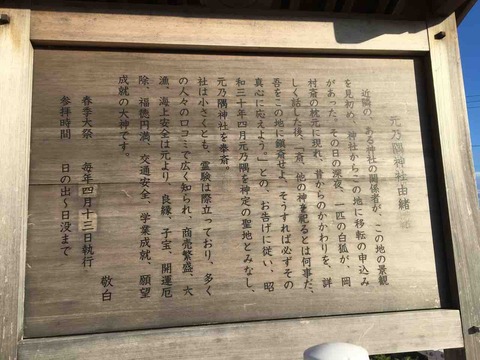 元乃隅神社由緒
近隣の、ある神社の関係者が、この地の景観
を見初め、神社からこの地に移転の申込み
があった。その日の深夜、一匹の白狐が、岡
村斎の枕元に現れ、昔からのかかわりを、詳
しく話した後、「斎、他の神を配るとは何事だ、
吾をこの地に鎮斎せよ。そうすれば必ずその
真心に応えよう。」との、お告げに従い、昭
和三十年四月元乃隅を神定の聖地とみなし、
元乃隅神社を奉斎。
社は小さくとも、霊験は際立っており、多く
の人々の口コミで広く知られ、商売繁盛、大
漁、海上安全は元より、良縁、子宝、開運厄
除、福徳円満、交通安全、学業成就、願望
成就の大神です。
敬白
春季大祭 毎年四月十三日執行
参拝時間 日の出〜日没まで